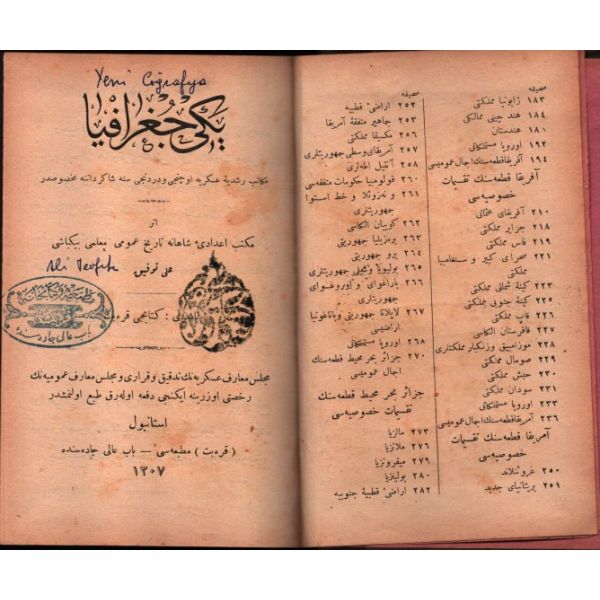 Yeni Coğrafya
یكی جغرافیا
مكاتب رشدیهٔ عسكریه اوچنجی و دردنجی سنه شاكردانته مخصوصدر
اثر
مكتب اعدادیٔ شاهانه تاریخ عمومی معلمی بیكباشی
علی توفیق
Ali Tevfik
كتابجی
باب عالی جاده سنده
مجلس معارف عسكریه نك تدقیق و قراری و مجلس معارف عمومیه نك
رخصتی اوزرینه ایكنجی دفعه اوله رق طبع اولنمشدر
استانبول
( قره بت ) مطبعه سی — باب عالی جاده سنده
١٣٠٧
صحیفه
١٨٣ ژاپونیا مملكتی
١٨٤ هند چینی ممالكی
١٨١ هندستان
١٩٣ اوروپا مستملكاتی
١٩٤ آفریقا قطعه سنك اجمال عمومیسی
آفریقا قطعه سنك تقسیمات
خصوصیه سی
٢١٠ آفریقای عثمانی
٢١٨ جزایر مملكتی
٢١٩ فاس مملكتی
٢٢١ صحرای كبیر و سنغامبیا
مملكتی
٢٢٣ كینهٔ شمالی مملكتی
٢٢٥ كینهٔ جنوبی مملكتی
٢٢٦ قاپ مملكتی
٢٢٧ قافرستان الكاسی
٢٢٨ موزامبیق و زنكبار مملكتلری
٢٢٩ صومال مملكتی
٢٣٠ حبش مملكتی
٢٣١ سودان مملكتی
٢٣٣ اوروپا مستملكاتی
٢٣٦ آمریقا قطعه سنك اجمال عمومیسی
آمریقا قطعه سنك تقسیمات
خصوصیه سی
٢٥٠ غروئنلاند
٢٥١ بریتانیای جدید
صحیفه
٢٥٢ اراضیٔ قطبیه
٢٥٣ جماهیر متفقهٔ آمریقا
٢٥٦ مكسیقا مملكتی
٢٥٧ آمریقای وسطی جمهوریتلری
٢٥٨ آنتیل اطه لری
٢٦٠ قولومبیا حكومات متفقه سی
٢٦١ ونه زوئلا و خط استوا
جمهوریتلری
٢٦٢ كویان الكاسی
٢٦٣ بره زیلیا جمهوریتی
٢٦٤ پرو جمهوریتی
٢٦٥ بولیویا و شیلی جمهوریتلری
٢٦٦ پاراغوای و اوروغوای
جمهوریتلری
٢٦٧ لاپلاتا جمهوریتی و پاتاغونیا
اراضیسی
٢٦٨ اوروپا مستملكاتی
٢٧٠ جزائر بحر محیط قطعه سنك
اجمال عمومیسی
جزائر بحر محیط قطعه سنك
تقسیمات خصوصیه سی
٢٧٣ مالزیا
٢٧٦ ملانزیا
٢٧٩ میقرونزیا
٢٨٠ پولینزیا
٢٨٢ اراضیٔ قطبیهٔ جنوبیه